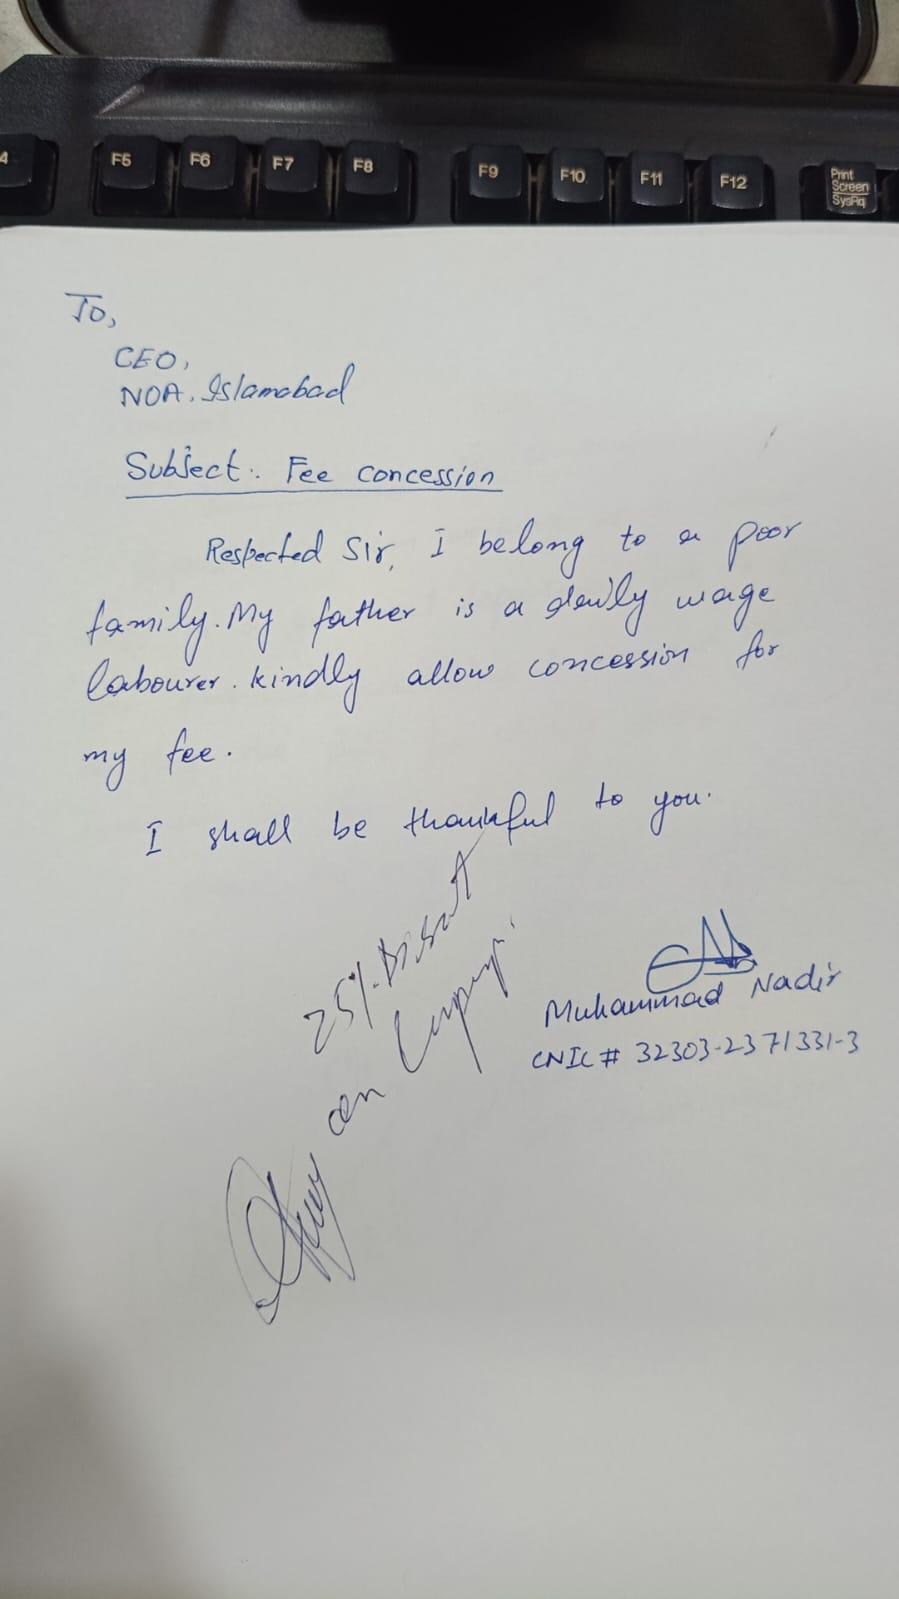 F5 F6 F7 F8 F9 F10 F11 F12 Print Screen SysRq
To,
CEO,
NOA, Islamabad
Subject: Fee concession
Respected Sir, I belong to a poor
family. My father is a daily wage
labourer. kindly allow concession for
my fee.
I shall be thankful to you.
25%
on
Muhammad Nadir
CNIC # 32303-2371331-3